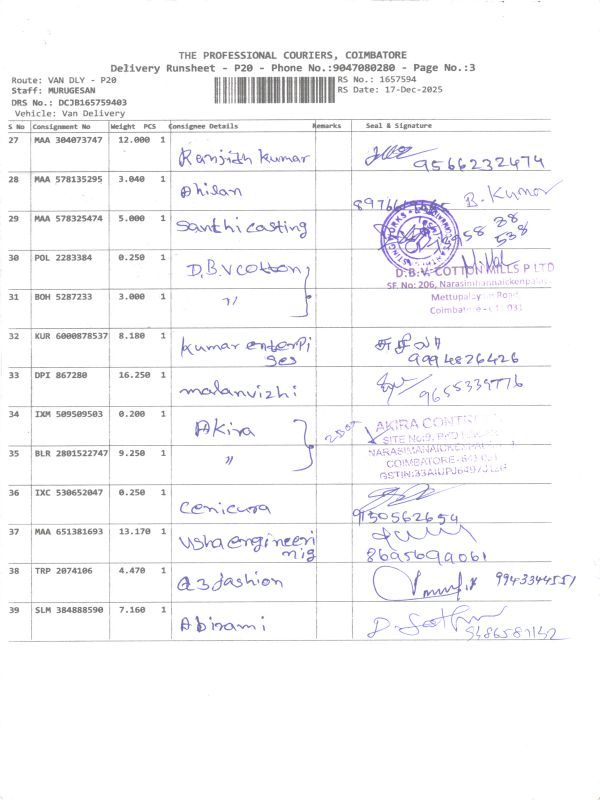 THE PROFESSIONAL COURIERS, COIMBATORE
Delivery Runsheet - P20 - Phone No.:9047080280 - Page No.:3
Route: VAN DLY - P20
RS No.: 1657594
Staff: MURUGESAN
RS Date: 17-Dec-2025
DRS No.: DCJB165759403
Vehicle: Van Delivery
S No Consignment No Weight PCS Consignee Details Remarks Seal & Signature
27 MAA 304073747 12.000 1 Ranjith kumar 9566232474
28 MAA 578135295 3.040 1 Ahilan B. Kumar
29 MAA 578325474 5.000 1 Santhi casting
30 POL 2283384 0.250 1 D.B.V cotton
D.B.V. COTTON MILLS P LTD
SF. No: 206, Narasimhannaickenpalay
31 BOH 5287233 3.000 1 "
Mettupalayam Road,
Coimbatore
32 KUR 6000878537 8.180 1 kumar enterpi
ses
சுசிலா
9994826426
33 DPI 867280 16.250 1 malarvizhi 9655339776
34 IXM 509509503 0.200 1 Akira
AKIRA CONTR
SITE No:9,
35 BLR 2801522747 9.250 1 "
NARASIMANAICKENPA
COIMBATORE
36 IXC 530652047 0.250 1 Cenicura 9150562654
37 MAA 651381693 13.170 1 Usha engineeri
nig
8695699061
38 TRP 2074106 4.470 1 a3 fashion 9943344551
39 SLM 384888590 7.160 1 Abirami